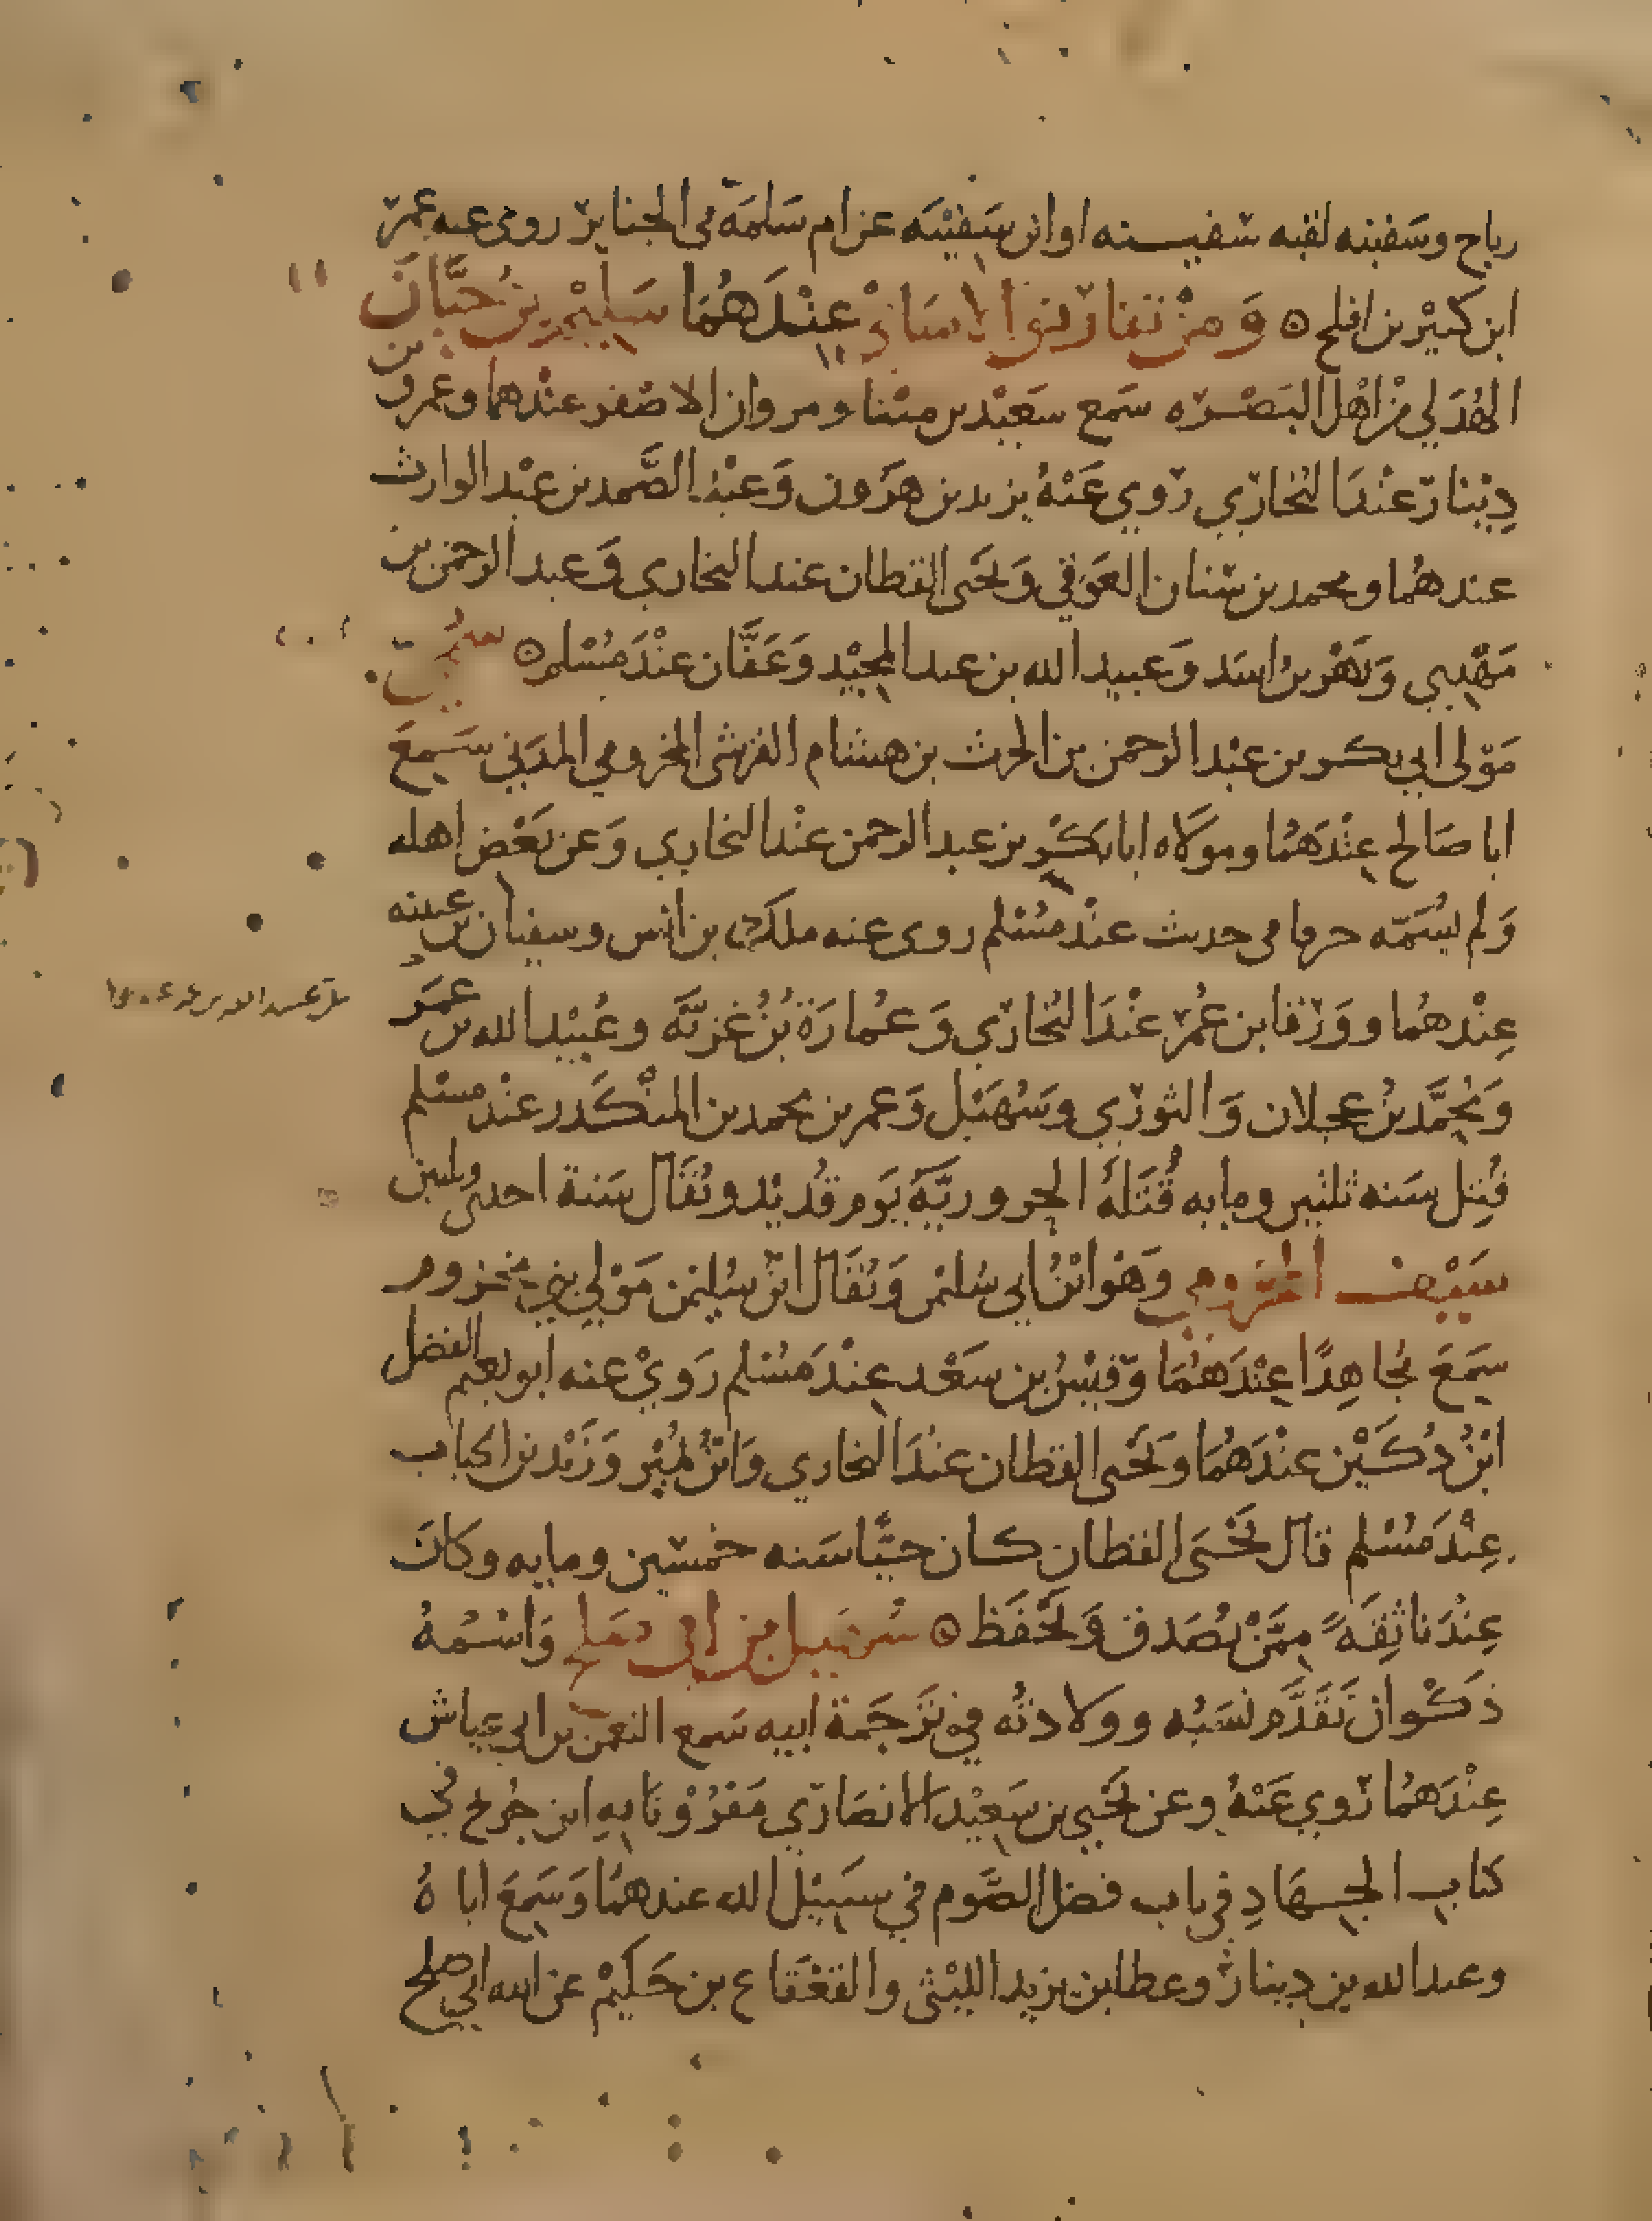 رباح وسفينه لقبه سفينه او ابن سفينه عن ام سلمة في الجنايز روى عنه عمر
ابن كثير بن افلح ۞ وَمن تفاريق الاسَانِيْد عِنْدَهُمَا سَلِيْمُ بنُ حَيَّانَ
الهُذَلي مِنْ اهْل البَصْرَه سَمع سَعيْد بن مينا ومروان الاصْفر عنْدهما وعمرو بن
دِيْنار عنْدَ البُخاري رَوي عَنْهُ يزيد بن هرُون وَعَبْد الصَّمد بن عبْد الوارث
عندهُما ومحمد بن سنان العَوَقي وَيَحْيَى القطان عند البخاري وَعبد الرحمن بن
مَهْدِي وَبَهْز بن اسَد وَعبيد الله بن عبد المجِيْد وَعَفَّان عنْدَ مُسْلم ۞ سُمَيّ
مَوْلى ابي بكر بن عبْد الرحمن بن الحرث بن هشام القرشي المخزومي المدَني سَمِعَ
ابا صَالح عِنْدَهُما ومولاه ابا بَكْرِ بن عبد الرحمن عنْد البخاري وَعن بَعْض اهله
وَلم يُسَمّه حرفا في حديث عنْد مُسْلم روى عنه ملك بن انس وسفيان بن عيينه
عِنْدهُما ووَرْقا بن عُمَر عنْدَ البُخاري وَعُمارَة بْنُ غزِيَّة وعُبيْد الله بن عُمَر
وَمُحَمَّد بنُ عجلان وَالثوري وسُهَيْل وَعمر بن محمد بن المنْكَدر عنْد مسْلم
قُتِل سَنه ثلثين ومايه قُتَلهُ الحرورِيَّة يَوم قُدَيْد ويُقَال سَنة احدى وثلثين
سَيْف المخزومي وَهوَ ابْنُ ابي سُليمن وَيُقَال ابن سُليمن مَوْلي بني مخزوم
سَمِعَ مُجاهِدًا عِنْدَهُمَا وَقيْسُ بن سَعْد عِنْدَ مسْلم رَوَيْ عنه ابو نعيم الفضل
ابْنُ دُكَيْن عنْدَهُمَا وَيَحْيى القطان عنْدَ البخاري وَابْنُ نُمَيْر وَزَيْد بن الحباب
عِنْدَ مُسْلم قال يَحْيَى القطان كان حيًّا سَنه خمْسين ومايه وكانَ
عِنْدَنا ثِقَةً مِمَّنْ يَصْدق وَيَحْفَظ ۞ سُهَيل بن ابي صَالح وَاسْمُهُ
ذكْوان تَقَدَّم نَسَبُه وولادتُه في تَرْجَمة ابيه سَمع النعمن بن ابي عياش
عِنْدَهُما رَوي عَنْهُ وعن يَحْيي بن سَعِيْد الانصَاري مَقْرُوْنَا بِهِ ابن جُريج في
كتابِ الجهَادِ في باب فضل الصَّوم في سبِيْل الله عندهُما وَسَمِعَ اباهُ
وعبد الله بن دينار وعطا بن يزيد الليْثي والقعْقاع بن حَكيْم عن ابيه ابي صلح